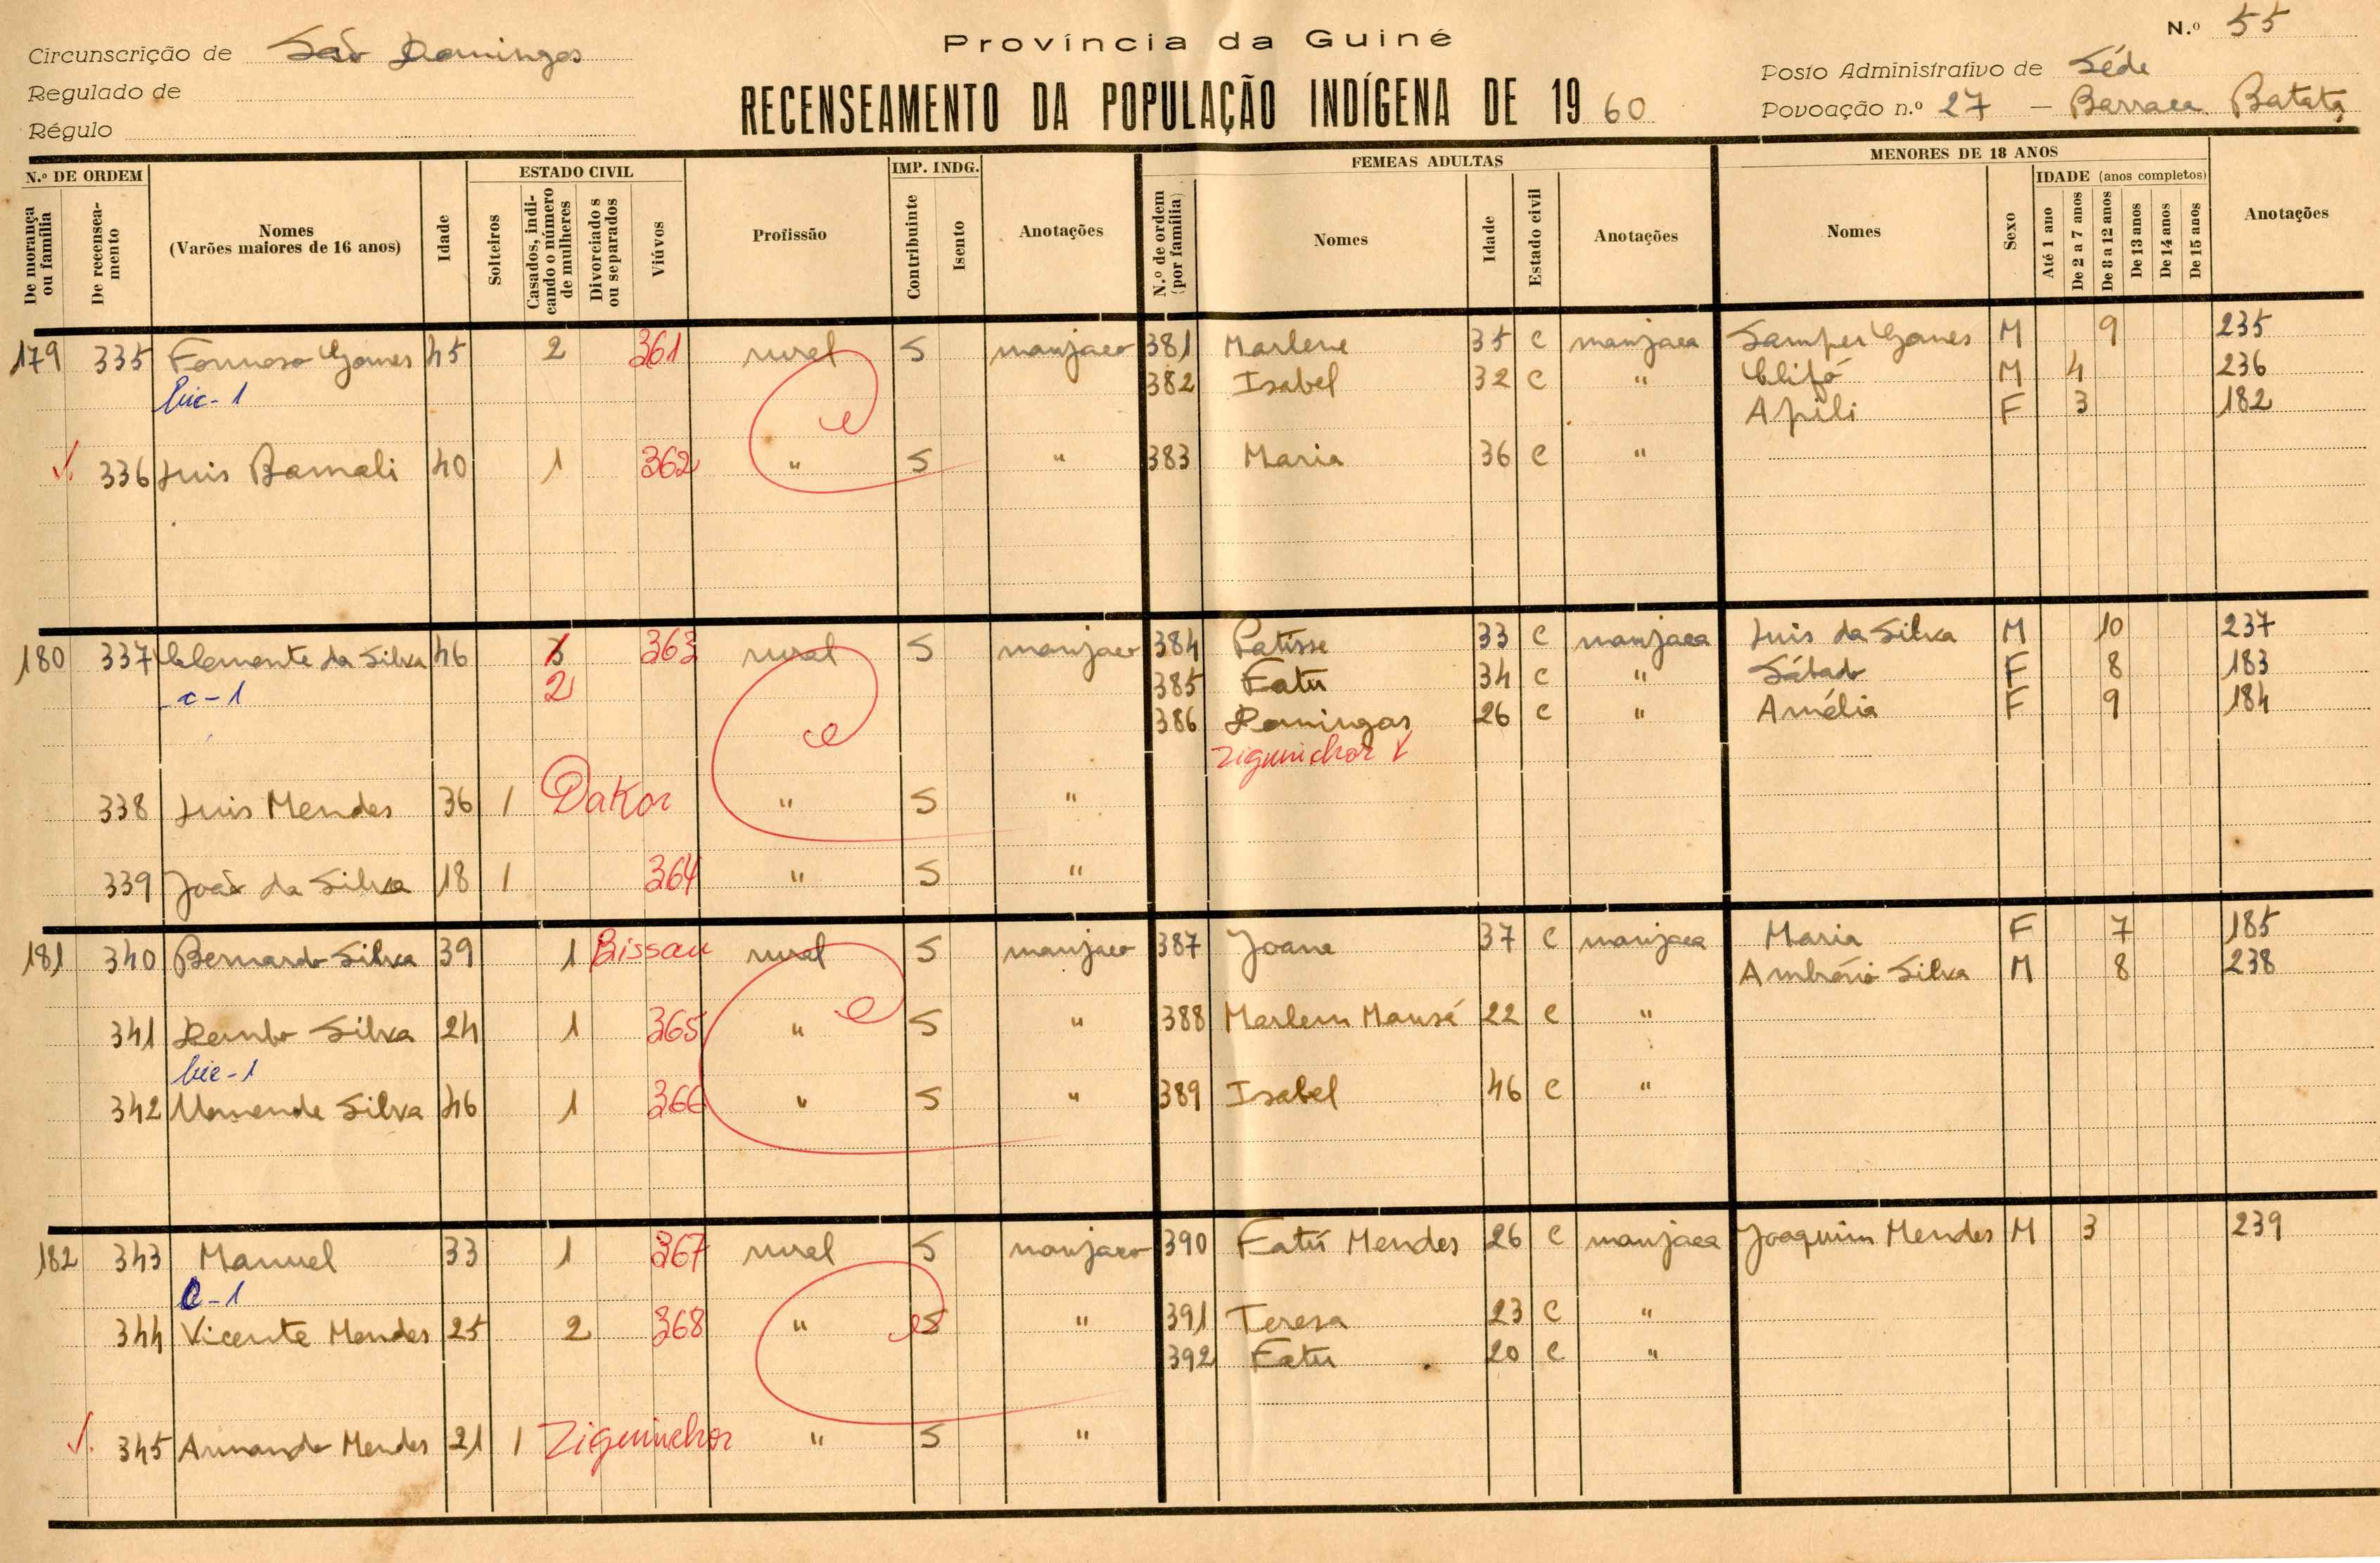 Província da Guiné
N.º 55
Circunscrição de São Domingos
Regulado de
Régulo
RECENSEAMENTO DA POPULAÇÃO INDÍGENA DE 1960
Posto Administrativo de Séde
Povoação n.º 27 — Barraca Batata
N.º DE ORDEM
De morança ou família
De recenseamento
Nomes
(Varões maiores de 16 anos)
Idade
ESTADO CIVIL
Solteiros
Casados, indicando o número de mulheres
Divorciados ou separados
Viúvos
Profissão
IMP. INDG.
Contribuinte
Isento
Anotações
FEMEAS ADULTAS
N.º de ordem (por família)
Nomes
Idade
Estado civil
Anotações
MENORES DE 18 ANOS
Nomes
Sexo
IDADE (anos completos)
Até 1 ano
De 2 a 7 anos
De 8 a 12 anos
De 13 anos
De 14 anos
De 15 anos
Anotações
179 335 Formoso Gomes 45 2 361 rural S manjaco 381 Marlene 35 C manjaca Samper Gomes M 9 235
bic-1 382 Isabel 32 C " Clifó M 4 236
Apili F 3 182
336 Luis Bamali 40 1 362 " S " 383 Maria 36 C "
180 337 Clemente da Silva 46 3 363 rural S manjaco 384 Patisse 33 C manjaca Luis da Silva M 10 237
c-1 2 385 Fatu 34 C " Sábado F 8 183
386 Domingas 26 C " Amélia F 9 184
Ziguinchor
338 Luis Mendes 36 1 Dakar " S "
339 João da Silva 18 1 364 " S "
181 340 Bernardo Silva 39 1 Bissau rural S manjaco 387 Joana 37 C manjaca Maria F 7 185
Ambrósio Silva M 8 238
341 Dembo Silva 24 1 365 " S " 388 Marlem Mansé 22 C "
bic-1
342 Umende Silva 46 1 366 " S " 389 Isabel 46 C "
182 343 Manuel 33 1 367 rural S manjaco 390 Fatú Mendes 26 C manjaca Joaquim Mendes M 3 239
C-1
344 Vicente Mendes 25 2 368 " S " 391 Teresa 23 C "
392 Fatu 20 C "
345 Armando Mendes 21 1 Ziguinchor " S "